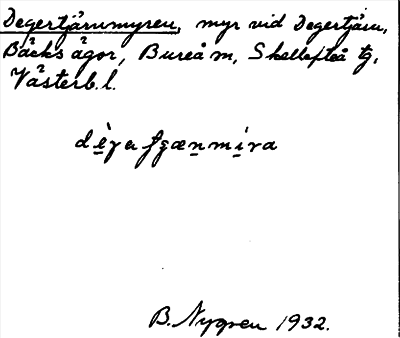 Degertjärnmyren, myr vid Degertjärn,
Bäcks ägor, Bureå sn, Skellefteå tg,
Västerb. l.
B. Nygren 1932.